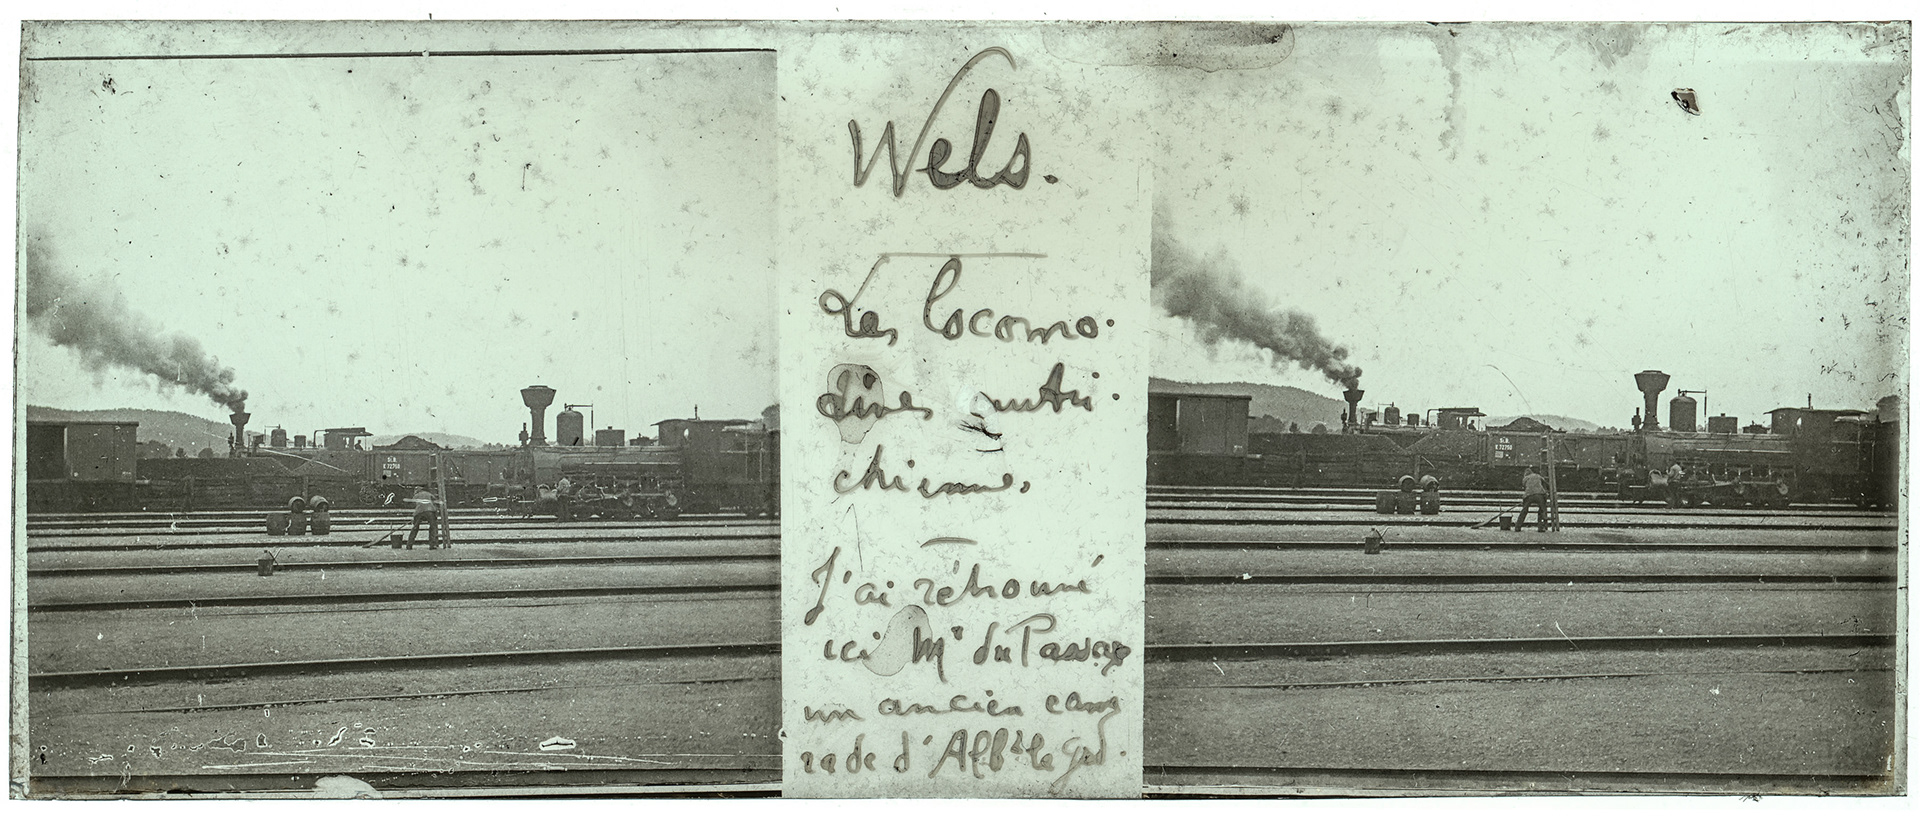 Wels.
Les locomo-
tives autri-
chiennes.
J'ai retrouvé
ici Mr du Passage
un ancien cama
rade d'Albt le Gd.
St.B.
K 72768